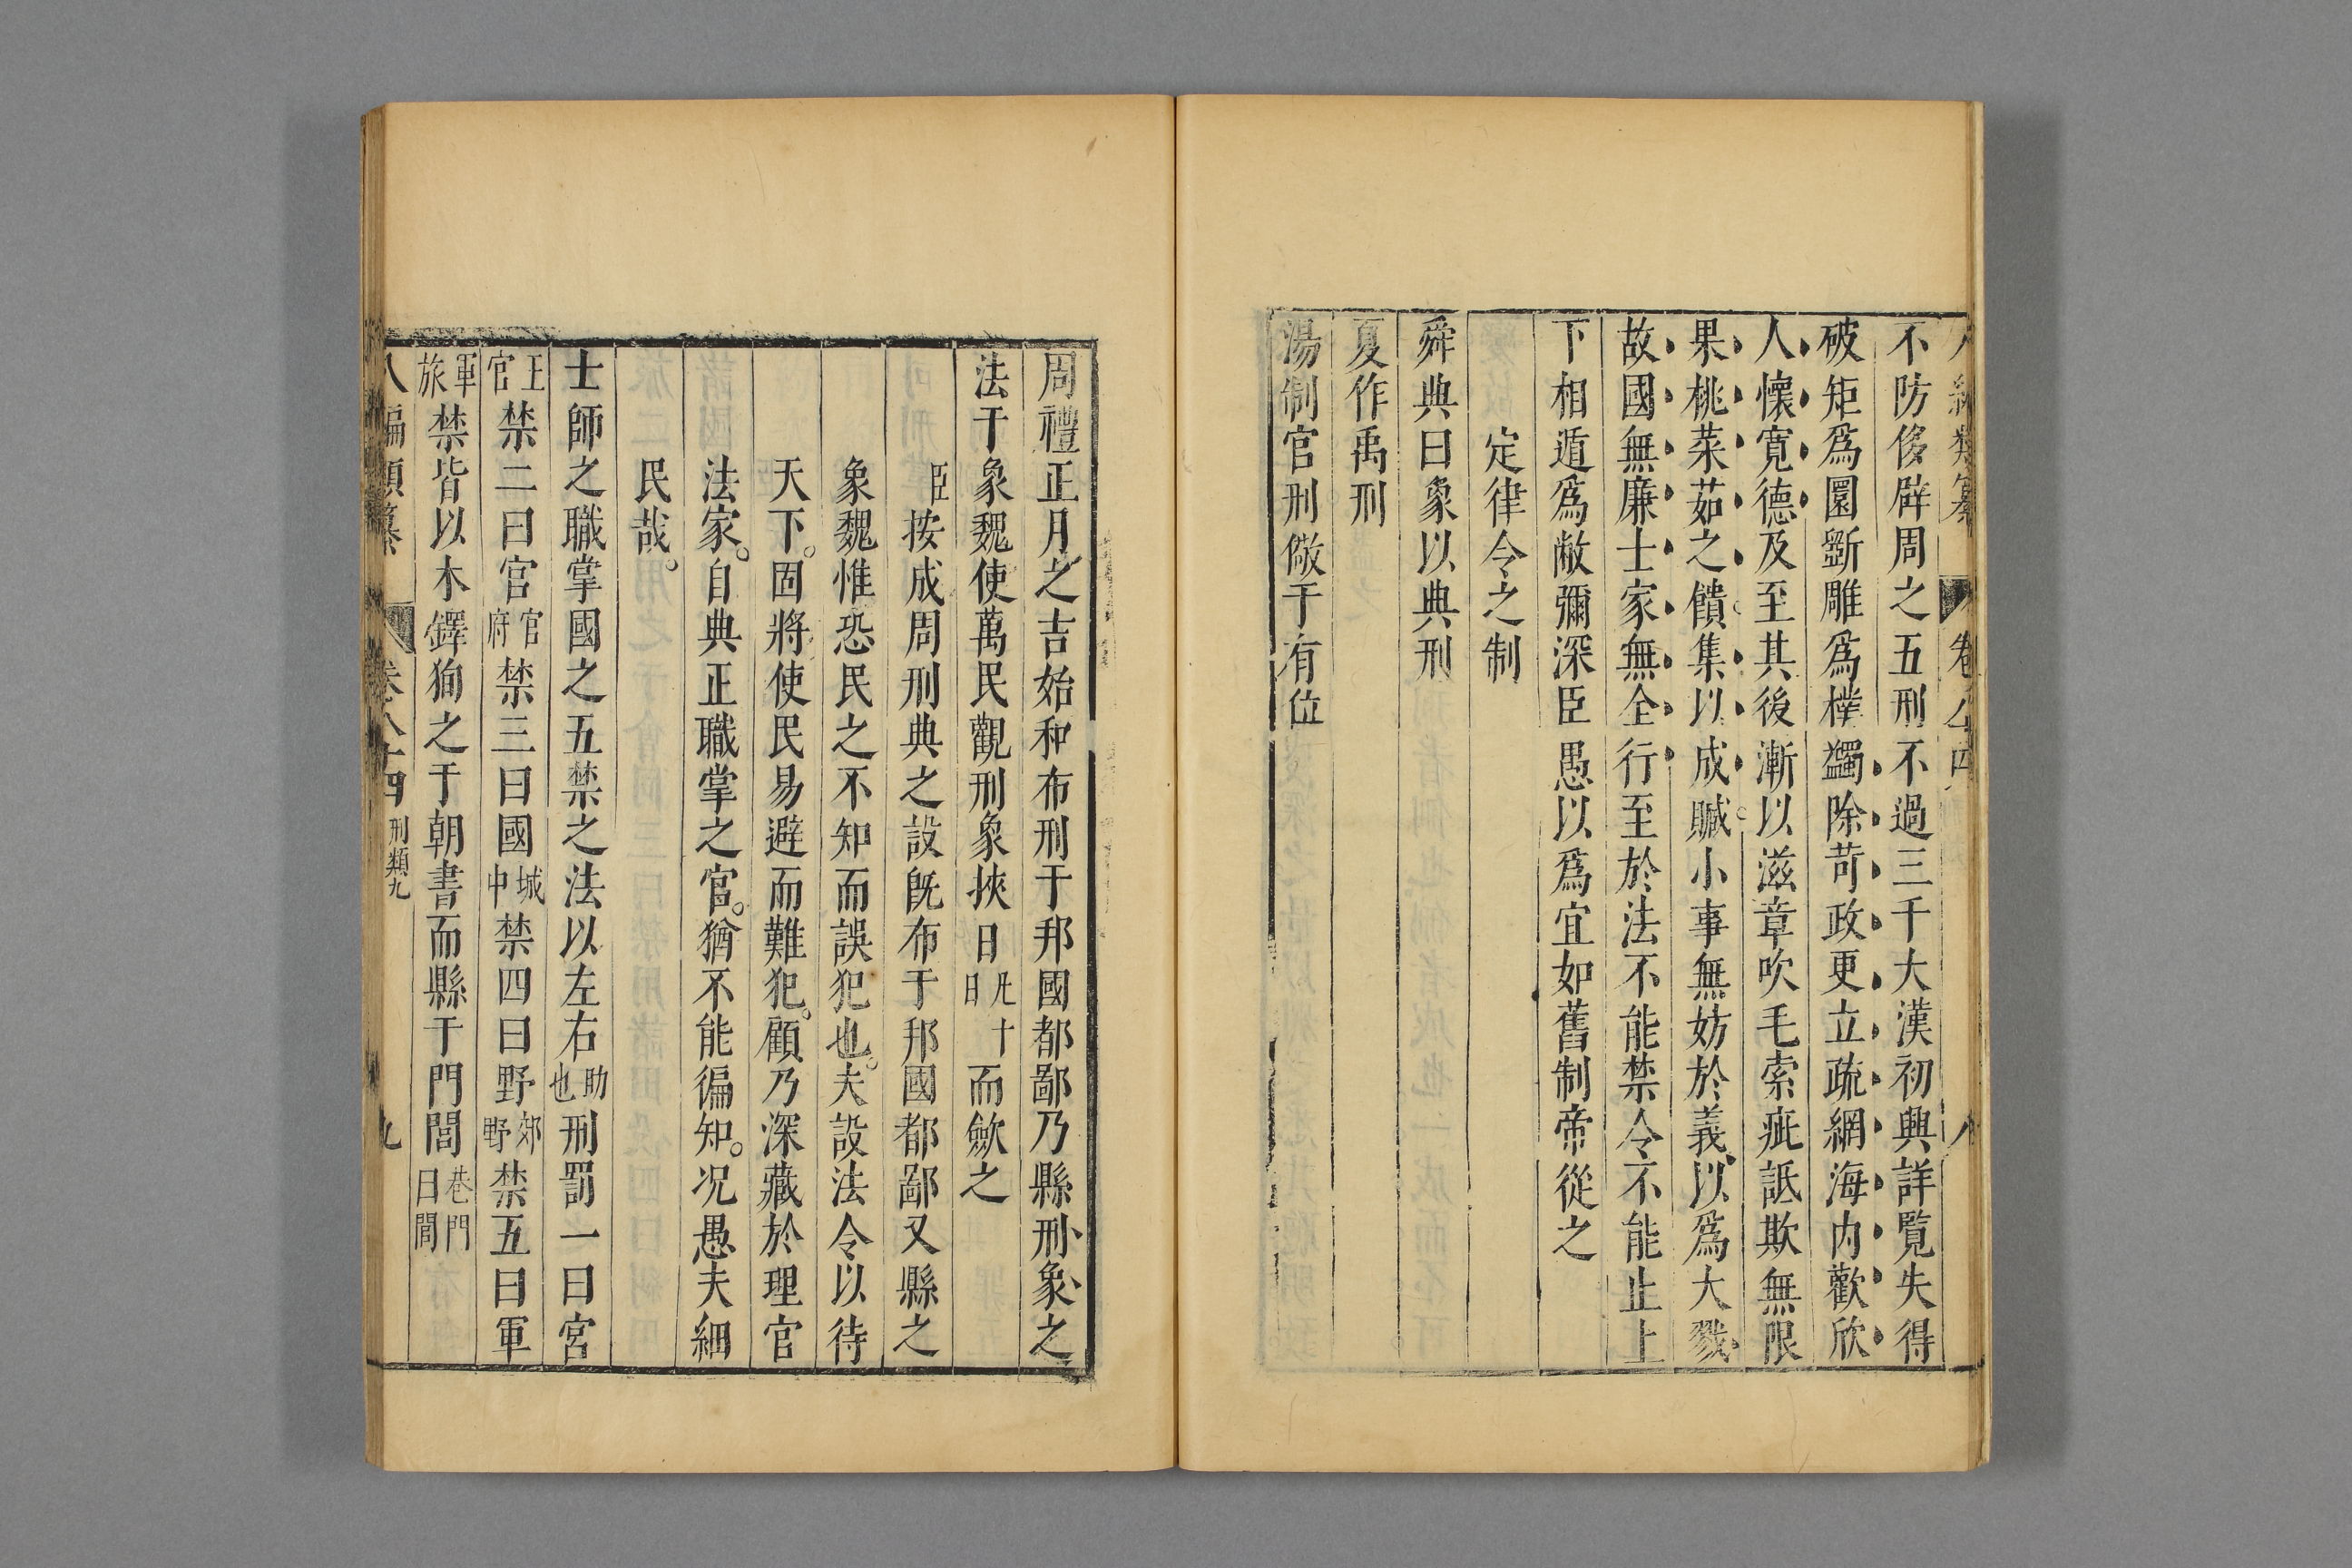 不防侈辟周之五刑不過三千大漢初興詳覧失得
破矩爲圜斵雕爲樸蠲除苛政更立疏網海内歡欣
人懷寛德及至其後漸以滋章吹毛索疵詆欺無限
果桃菜茹之饋集以成贓小事無妨於義以爲大戮
故國無廉士家無全行至於法不能禁令不能止上
下相遁爲敝彌深臣愚以爲宜如舊制帝從之
定律令之制
舜典曰象以典刑
夏作禹刑
湯制官刑儆于有位
周禮正月之吉始和布刑于邦國都鄙乃縣刑象之
法于象魏使萬民觀刑象挾日凡十日而歛之
臣按成周刑典之設旣布于邦國都鄙又縣之
象魏惟恐民之不知而誤犯也。夫設法令以待
天下。固將使民易避而難犯。顧乃深藏於理官
法家。自典正職掌之官。猶不能徧知。况愚夫細
民哉。
士師之職掌國之五禁之法以左右助也刑罰一曰宮
王官禁二曰官官府禁三曰國城中禁四曰野郊野禁五曰軍
軍旅禁皆以木鐸狥之于朝書而縣于門閭巷門曰閭
八編類纂 卷八十四 刑類九 九